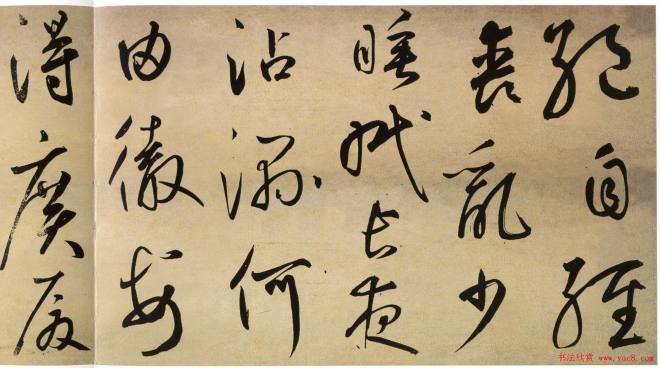 絕自經
喪亂少
睡眠長夜
沾濕何
由徹安
得廣厦
书法欣赏 www.yac8.com